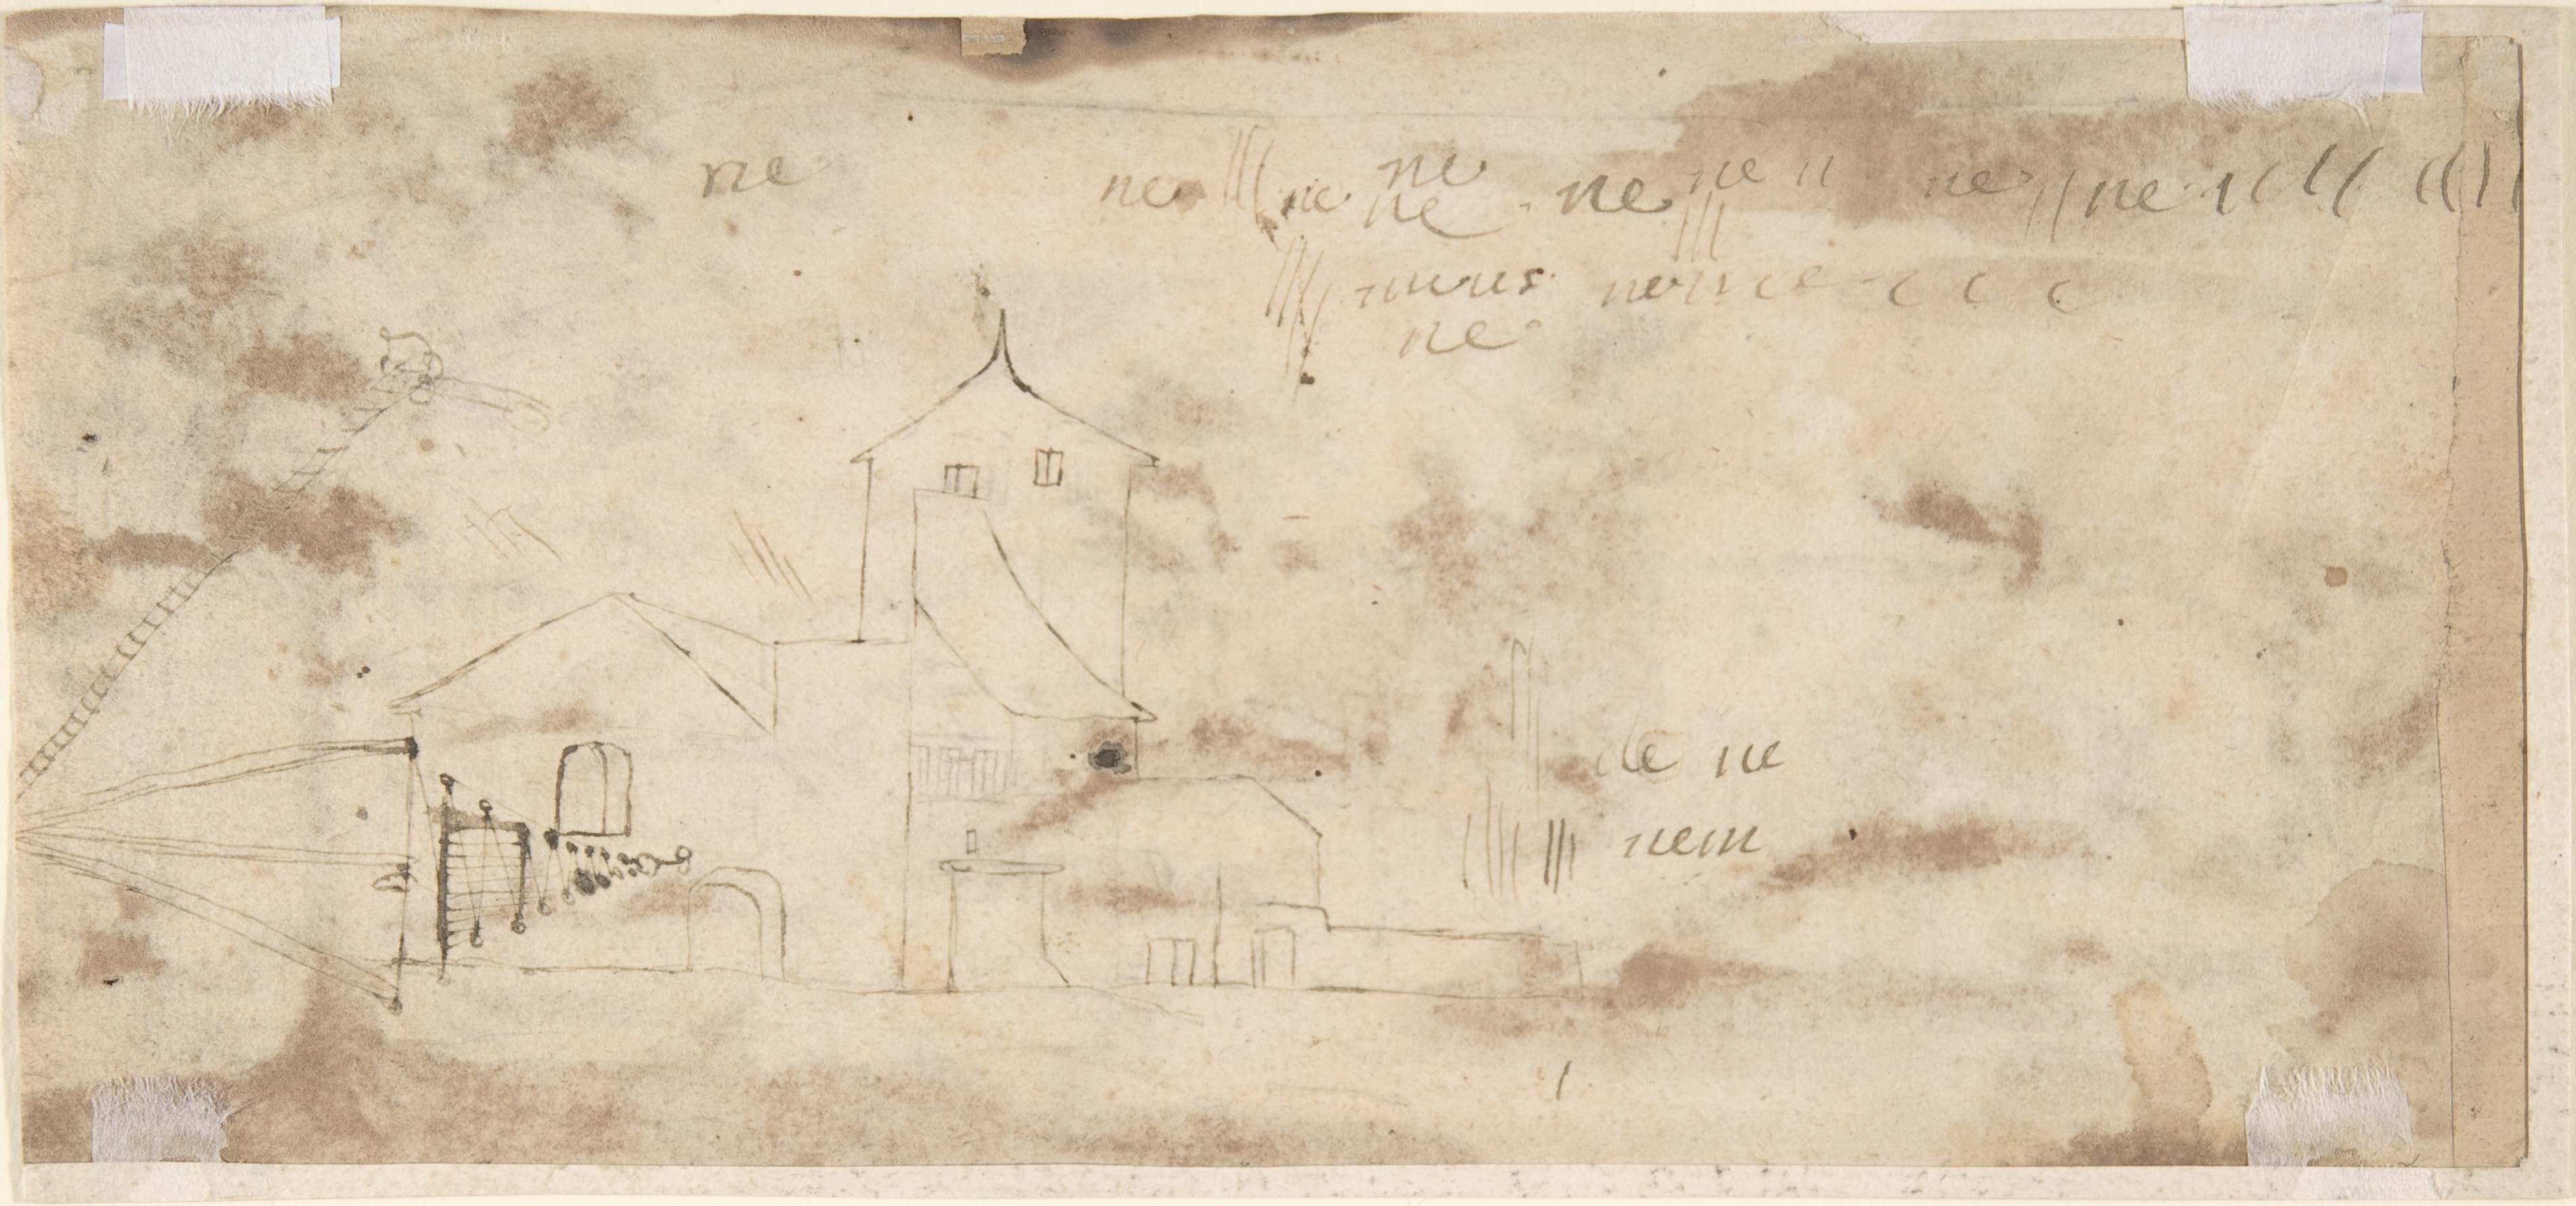 ne ne ne ne ne ne ne ne ne
ne
de ne
nem